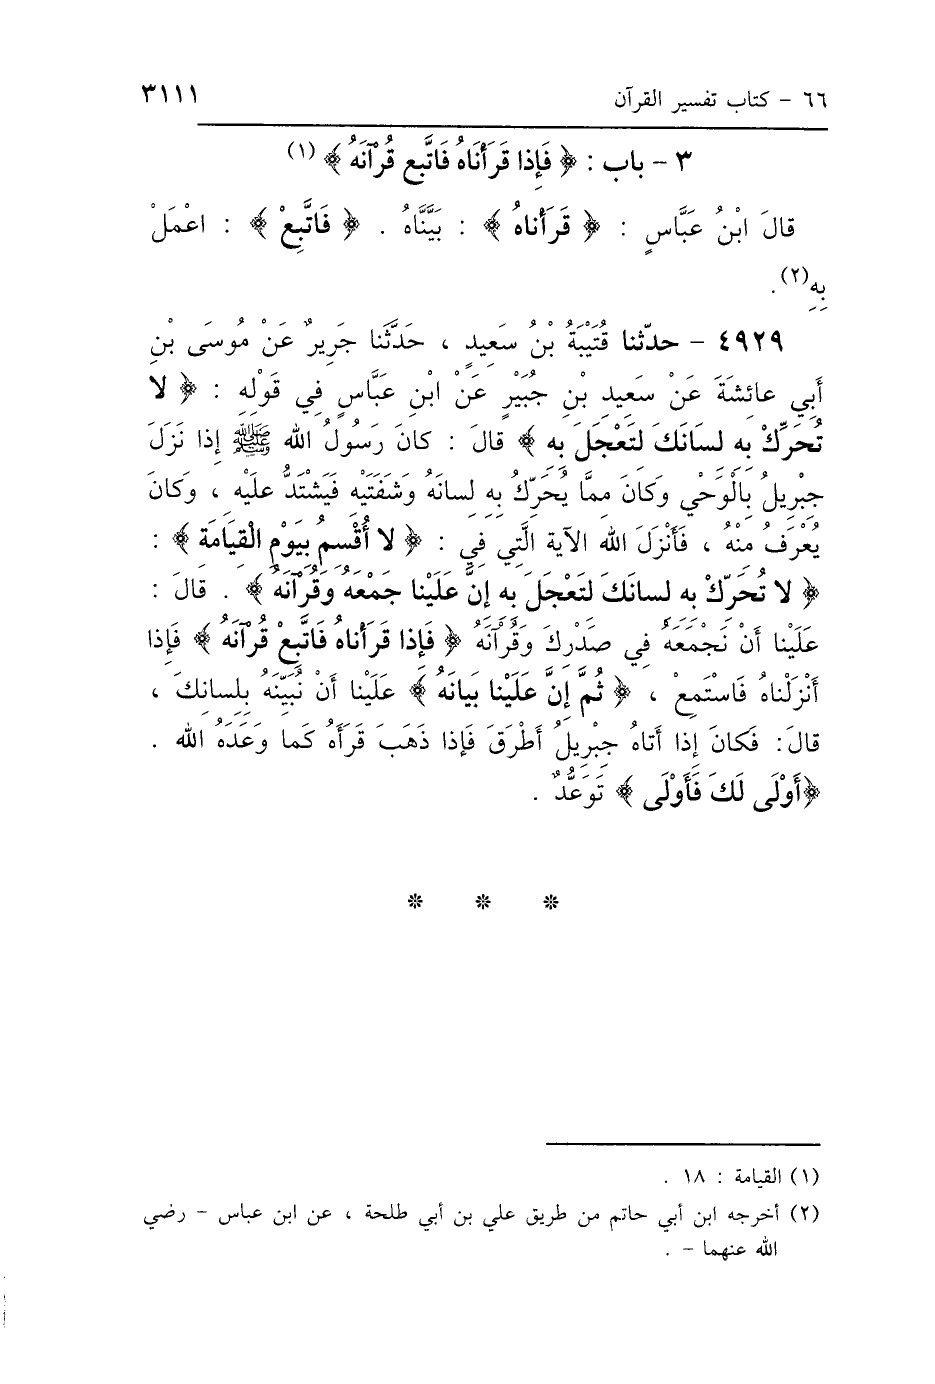 ٦٦ - كتاب تفسير القرآن ٣١١١
٣ - باب : ﴿ فَإِذا قَرَأْنَاهُ فَاتَّبِع قُرْآنَهُ ﴾ (١)
قالَ ابْنُ عَبَّاسٍ : ﴿ قَرَأْناهُ ﴾ : بَيَّنَّاهُ . ﴿ فَاتَّبِعْ ﴾ : اعْمَلْ
بِهِ(٢).
٤٩٢٩ - حدّثنا قُتَيْبَةُ بْنُ سَعِيدٍ ، حَدَّثَنا جَرِيرٌ عَنْ مُوسَى بْنِ
أَبِي عائِشَةَ عَنْ سَعِيدِ بْنِ جُبَيْرٍ عَنْ ابْنِ عَبَّاسٍ فِي قَوْلِهِ : ﴿ لا
تُحَرِّكْ بِهِ لِسَانَكَ لِتَعْجَلَ بِهِ ﴾ قالَ : كانَ رَسُولُ الله ﷺ إذا نَزَلَ
جِبْرِيلُ بِالْوَحْيِ وَكانَ مِمَّا يُحَرِّكُ بِهِ لِسانَهُ وَشَفَتَيْهِ فَيَشْتَدُّ عَلَيْهِ ، وَكانَ
يُعْرَفُ مِنْهُ ، فَأَنْزَلَ الله الآيةَ الَّتِي فِي : ﴿ لا أُقْسِمُ بِيَوْمِ الْقِيَامَةِ ﴾ :
﴿ لا تُحَرِّكْ بِهِ لِسانَكَ لِتَعْجَلَ بِهِ إِنَّ عَلَيْنا جَمْعَهُ وَقُرْآنَهُ ﴾ . قالَ :
عَلَيْنا أَنْ نَجْمَعَهُ فِي صَدْرِكَ وَقُرْآنَهُ ﴿ فَإِذا قَرَأْناهُ فَاتَّبِعْ قُرْآنَهُ ﴾ فَإِذا
أَنْزَلْناهُ فَاسْتَمِعْ ، ﴿ ثُمَّ إِنَّ عَلَيْنا بَيانَهُ ﴾ عَلَيْنا أَنْ نُبَيِّنَهُ بِلِسانِكَ ،
قالَ: فَكانَ إِذا أَتاهُ جِبْرِيلُ أَطْرَقَ فَإِذا ذَهَبَ قَرَأَهُ كَما وَعَدَهُ الله .
﴿أَوْلَى لَكَ فَأَوْلَى ﴾ تَوَعُّدٌ .
* * *
(١) القيامة : ١٨ .
(٢) أخرجه ابن أبي حاتم من طريق علي بن أبي طلحة ، عن ابن عباس - رضي
الله عنهما - .